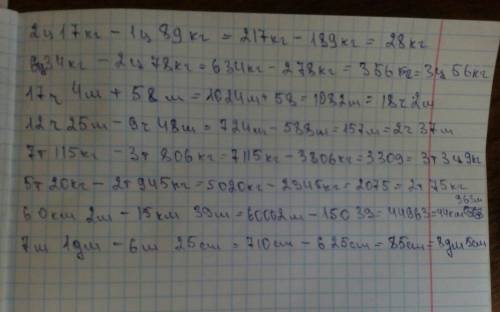 2ц 17кг - 1ц 89кг = 217кг - 189кг = 28кг
6ц34кг - 2ц 78кг = 634кг - 278кг = 356кг = 3ц 56кг
17ч 4m + 58m = 1024m + 58 = 1082m = 18ч 2m
12ч 25m - 9ч 48m = 724m - 588m = 157m = 2ч 37m
7т 115кг - 3т 806кг = 7115кг - 3806кг = 3309 = 3т 309кг
5т 20кг - 2т 945кг = 5020кг - 2945кг = 2075 = 2т 75кг
60км 2m - 15км 39m = 60002m - 15039 = 44963 = 44км 963м
7m 1дm - 6m 25cm = 710cm - 625cm = 85cm = 8дm 5cm